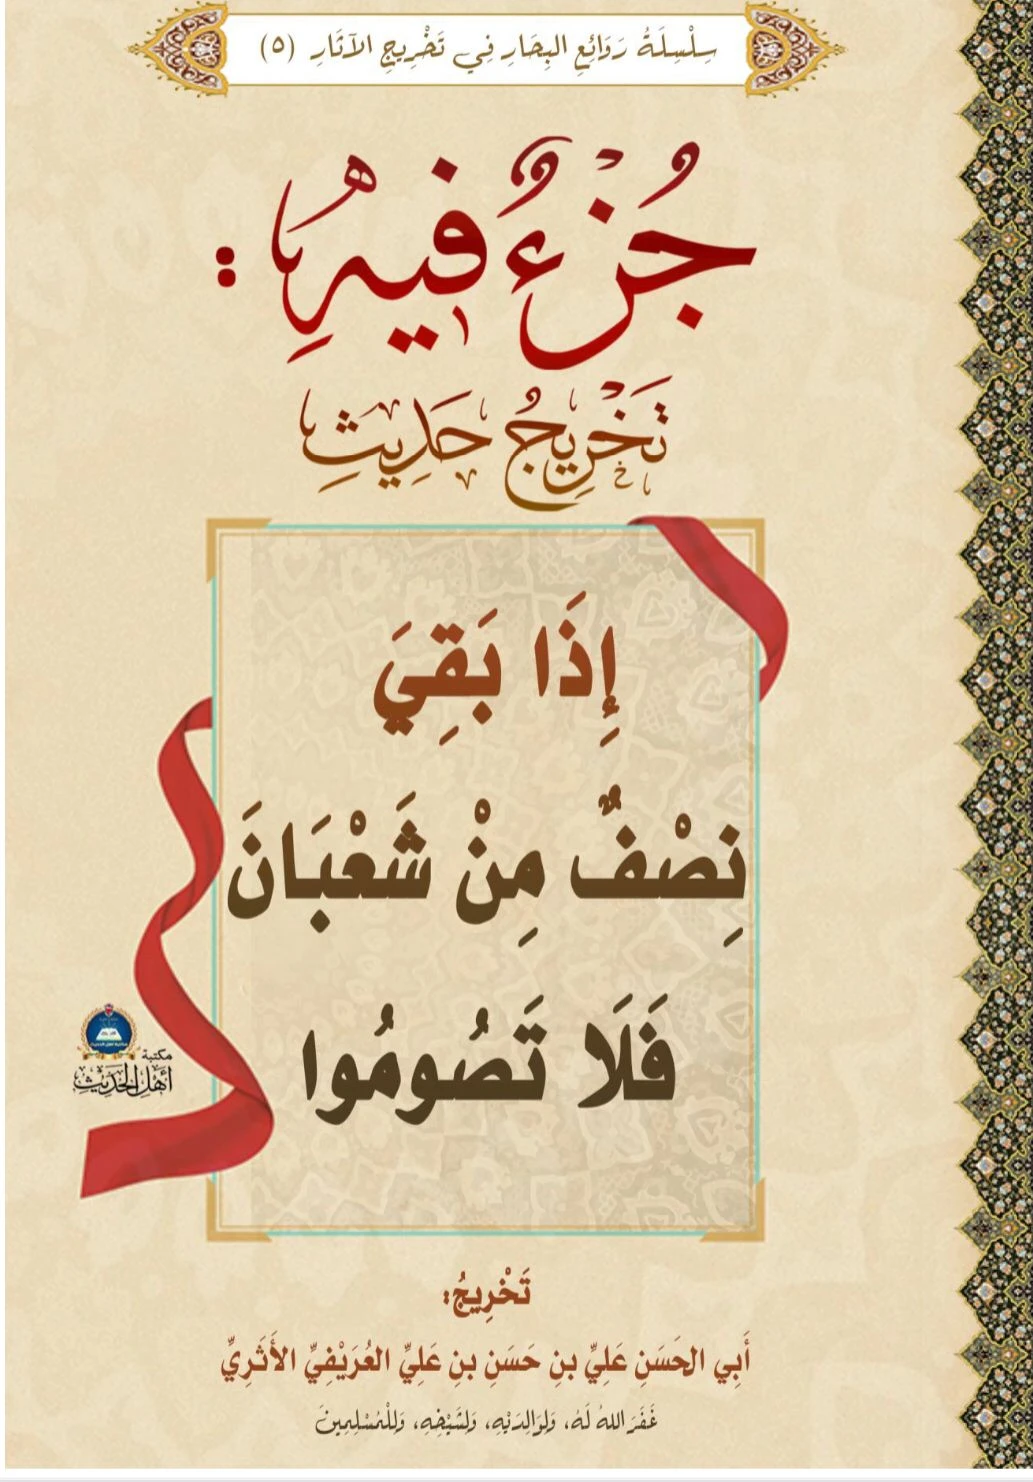 سِلْسِلَةُ رَوَائِعِ البِحَارِ فِي تَخْرِيجِ الآثَارِ (٥)
جُزْءٌ فِيهِ :
تَخْرِيجُ حَدِيثِ
إِذَا بَقِيَ
نِصْفٌ مِنْ شَعْبَانَ
فَلَا تَصُومُوا
مكتبة
أَهْلِ الحَدِيثِ
تَخْرِيجُ:
أَبِي الحَسَنِ عَلِيِّ بنِ حَسَنِ بنِ عَلِيٍّ العُرَيْفِيِّ الأَثَرِيِّ
غَفَرَ اللهُ لَهُ، وَلِوَالِدَيْهِ، وَلِشَيْخِهِ، وَلِلْمُسْلِمِينَ